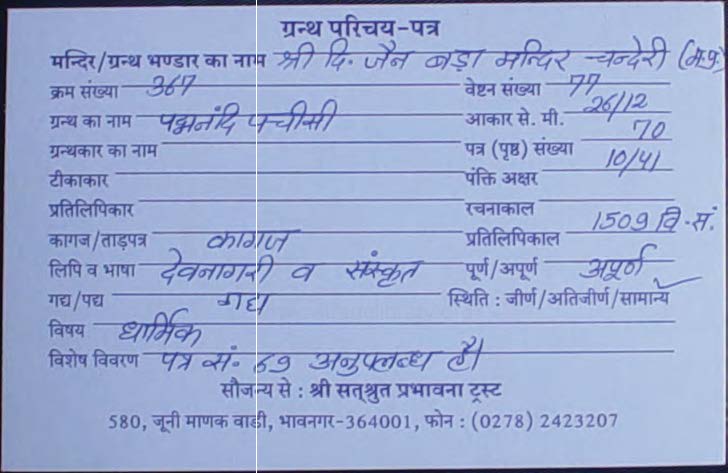 ग्रन्थ परिचय-पत्र
मन्दिर/ग्रन्थ भण्डार का नाम श्री दि. जैन बड़ा मन्दिर चन्देरी (म.प्र.
क्रम संख्या 367 वेष्टन संख्या 77
ग्रन्थ का नाम पद्मनंदि पच्चीसी आकार से. मी. 26/12
ग्रन्थकार का नाम पत्र (पृष्ठ) संख्या 70
टीकाकार पंक्ति अक्षर 10/41
प्रतिलिपिकार रचनाकाल
कागज/ताड़पत्र कागज प्रतिलिपिकाल 1509 वि. सं.
लिपि व भाषा देवनागरी व संस्कृत पूर्ण/अपूर्ण अपूर्ण
गद्य/पद्य गद्य स्थिति : जीर्ण/अतिजीर्ण/सामान्य
विषय धार्मिक
विशेष विवरण पत्र सं. 69 अनुपलब्ध है।
सौजन्य से : श्री सत्श्रुत प्रभावना ट्रस्ट
580, जूनी माणक वाडी, भावनगर-364001, फोन : (0278) 2423207